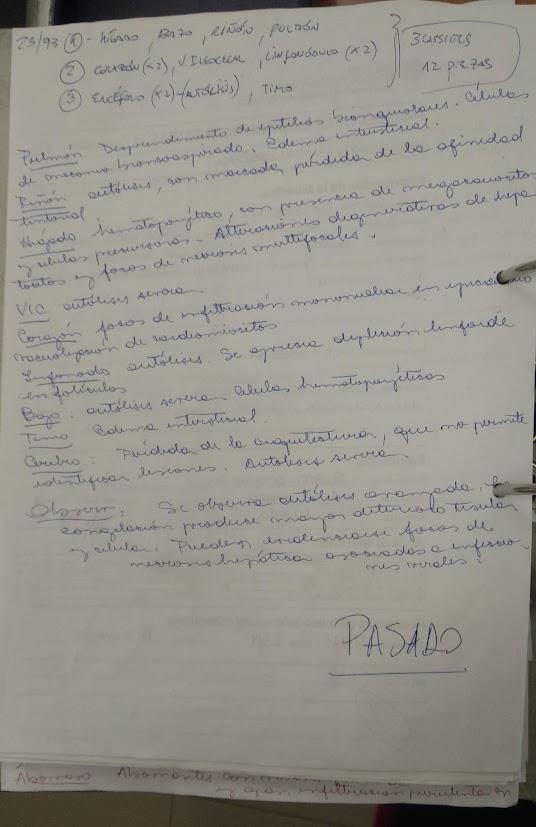 23/93 ① - HÍGADO, BAZO, RIÑÓN, PULMÓN
② CORAZÓN (X2), V ILEOCECAL, LINFONÓDULO (X2)
③ ENCÉFALO (X2) - (AUTÓLISIS), TIMO
3 CASSITES
12 PIEZAS
Pulmón Desprendimiento de epitelios bronquiolares. Células
de meconio broncoaspirado. Edema intersticial.
Riñón autólisis, con marcada pérdida de la afinidad
tintorial
Hígado hematopoyético, con presencia de megacariocitos
y células precursoras. Alteraciones degenerativas de hepa
tocitos y focos de necrosis multifocales.
VIC autólisis severa
Corazón focos de infiltración mononuclear en epicardio
vacuolización de cardiomiocitos
Linfonodo autólisis. Se aprecia depleción linfoide
en folículos
Bazo: autólisis severa células hematopoyéticas
Timo Edema intersticial.
Cerebro: Pérdida de la arquitectura, que no permite
identificar lesiones. Autólisis severa
Observ: Se observa autólisis avanzada, la
congelación produce mayor deterioro tisular
y celular. Pueden evidenciarse focos de
necrosis hepática asociados a infeccio
nes virales.
PASADO
Abomaso Abomasitis con
y gran infiltración purulenta en